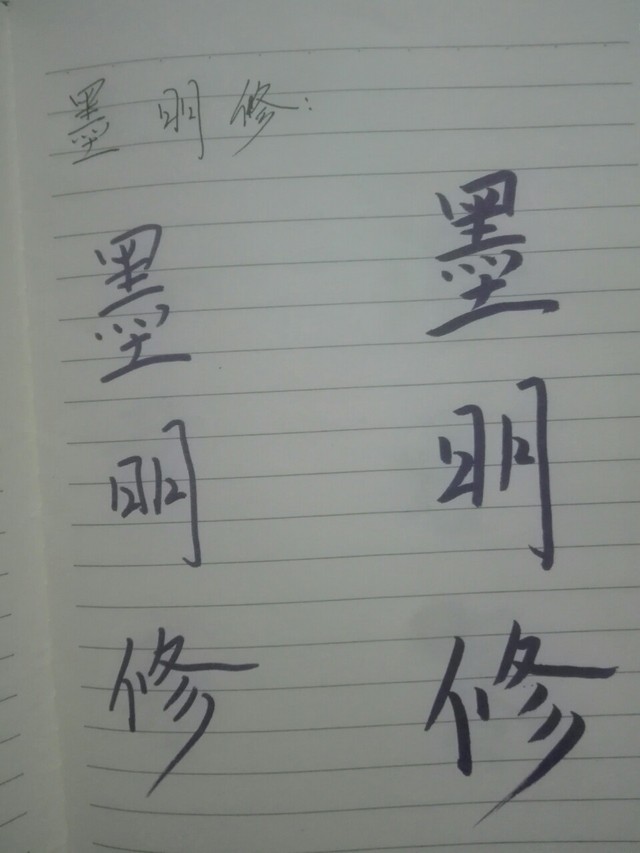 墨明修:
墨明修
墨明修